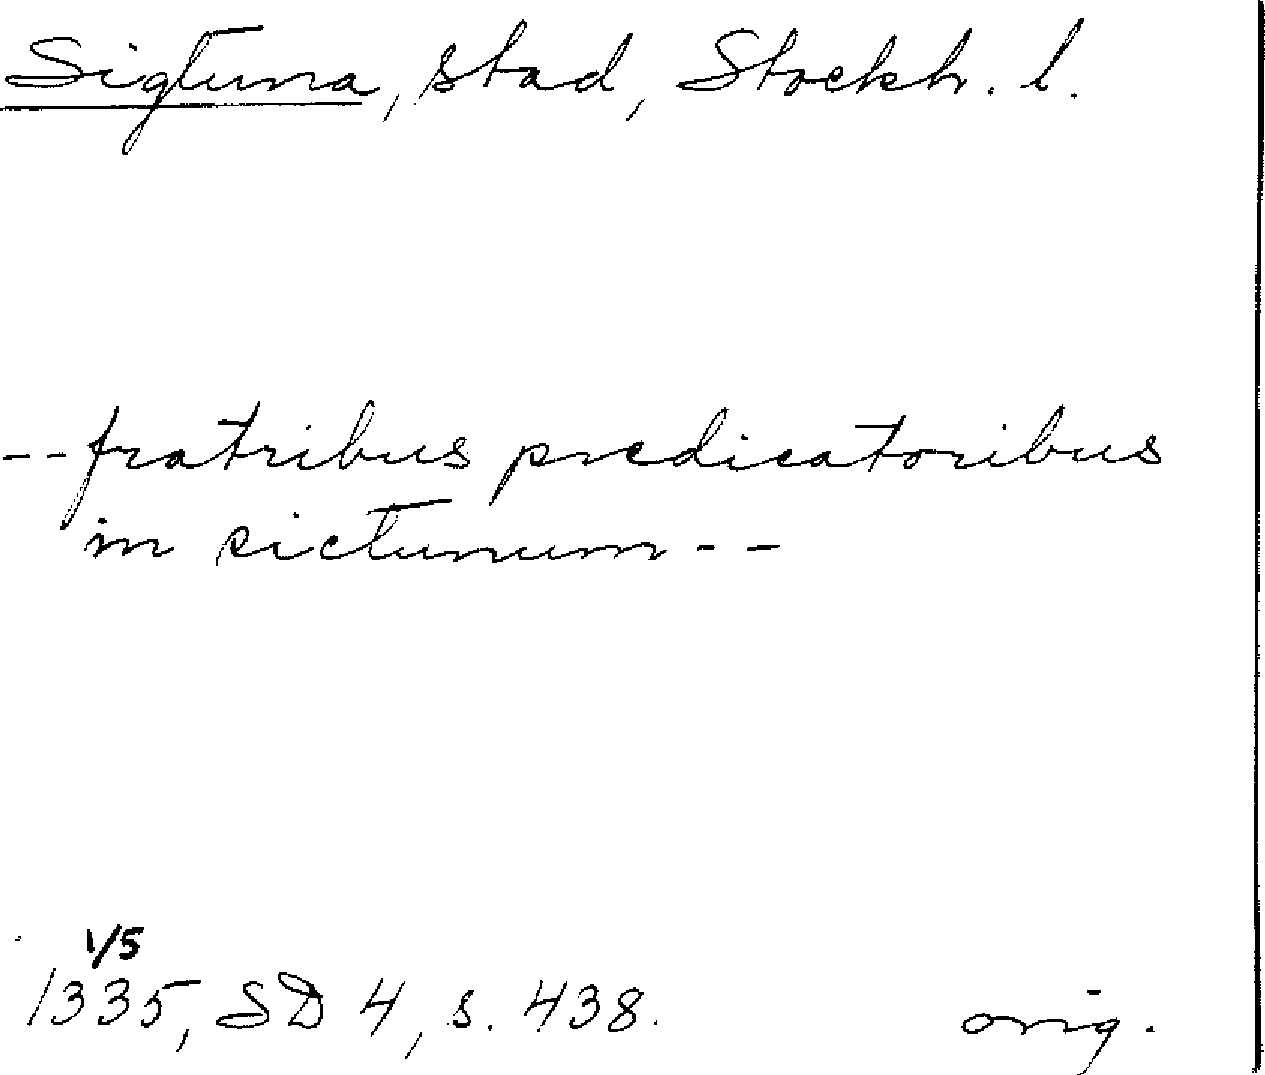 Sigtuna, stad, Stockh. l.
-- fratribus predicatoribus
in sictunum --
1/5
1335, SD 4, s. 438.
orig.